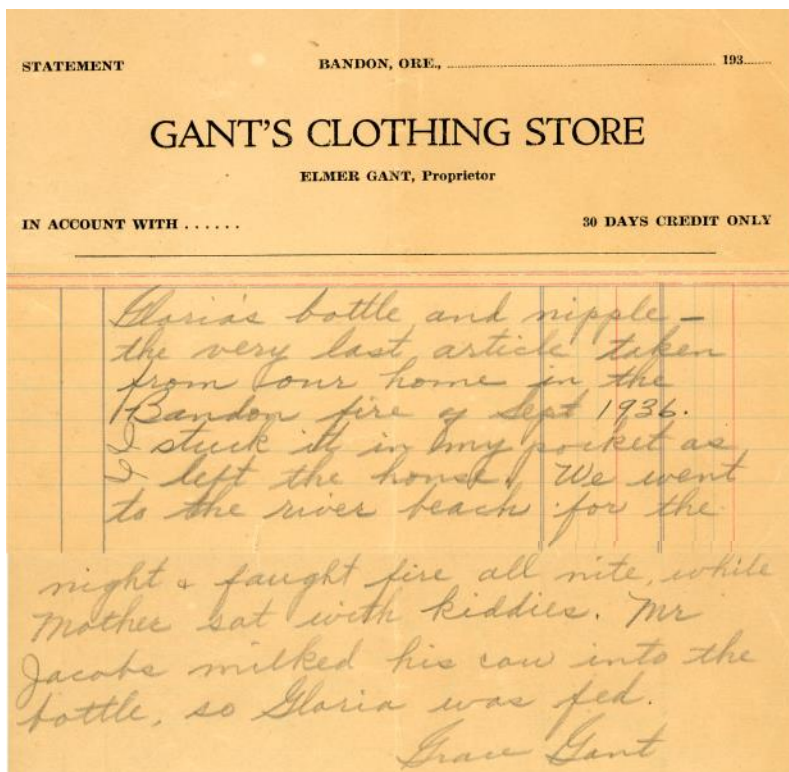 STATEMENT BANDON, ORE., ........................ 193......
GANT'S CLOTHING STORE
ELMER GANT, Proprietor
IN ACCOUNT WITH ...... 30 DAYS CREDIT ONLY
Gloria's bottle and nipple –
the very last article taken
from our home in the
Bandon fire of Sept 1936.
I stuck it in my pocket as
I left the house. We went
to the river beach for the
night & faught fire all nite, while
Mother sat with kiddies. Mr
Jacobs milked his cow into the
bottle, so Gloria was fed.
Grace Gant